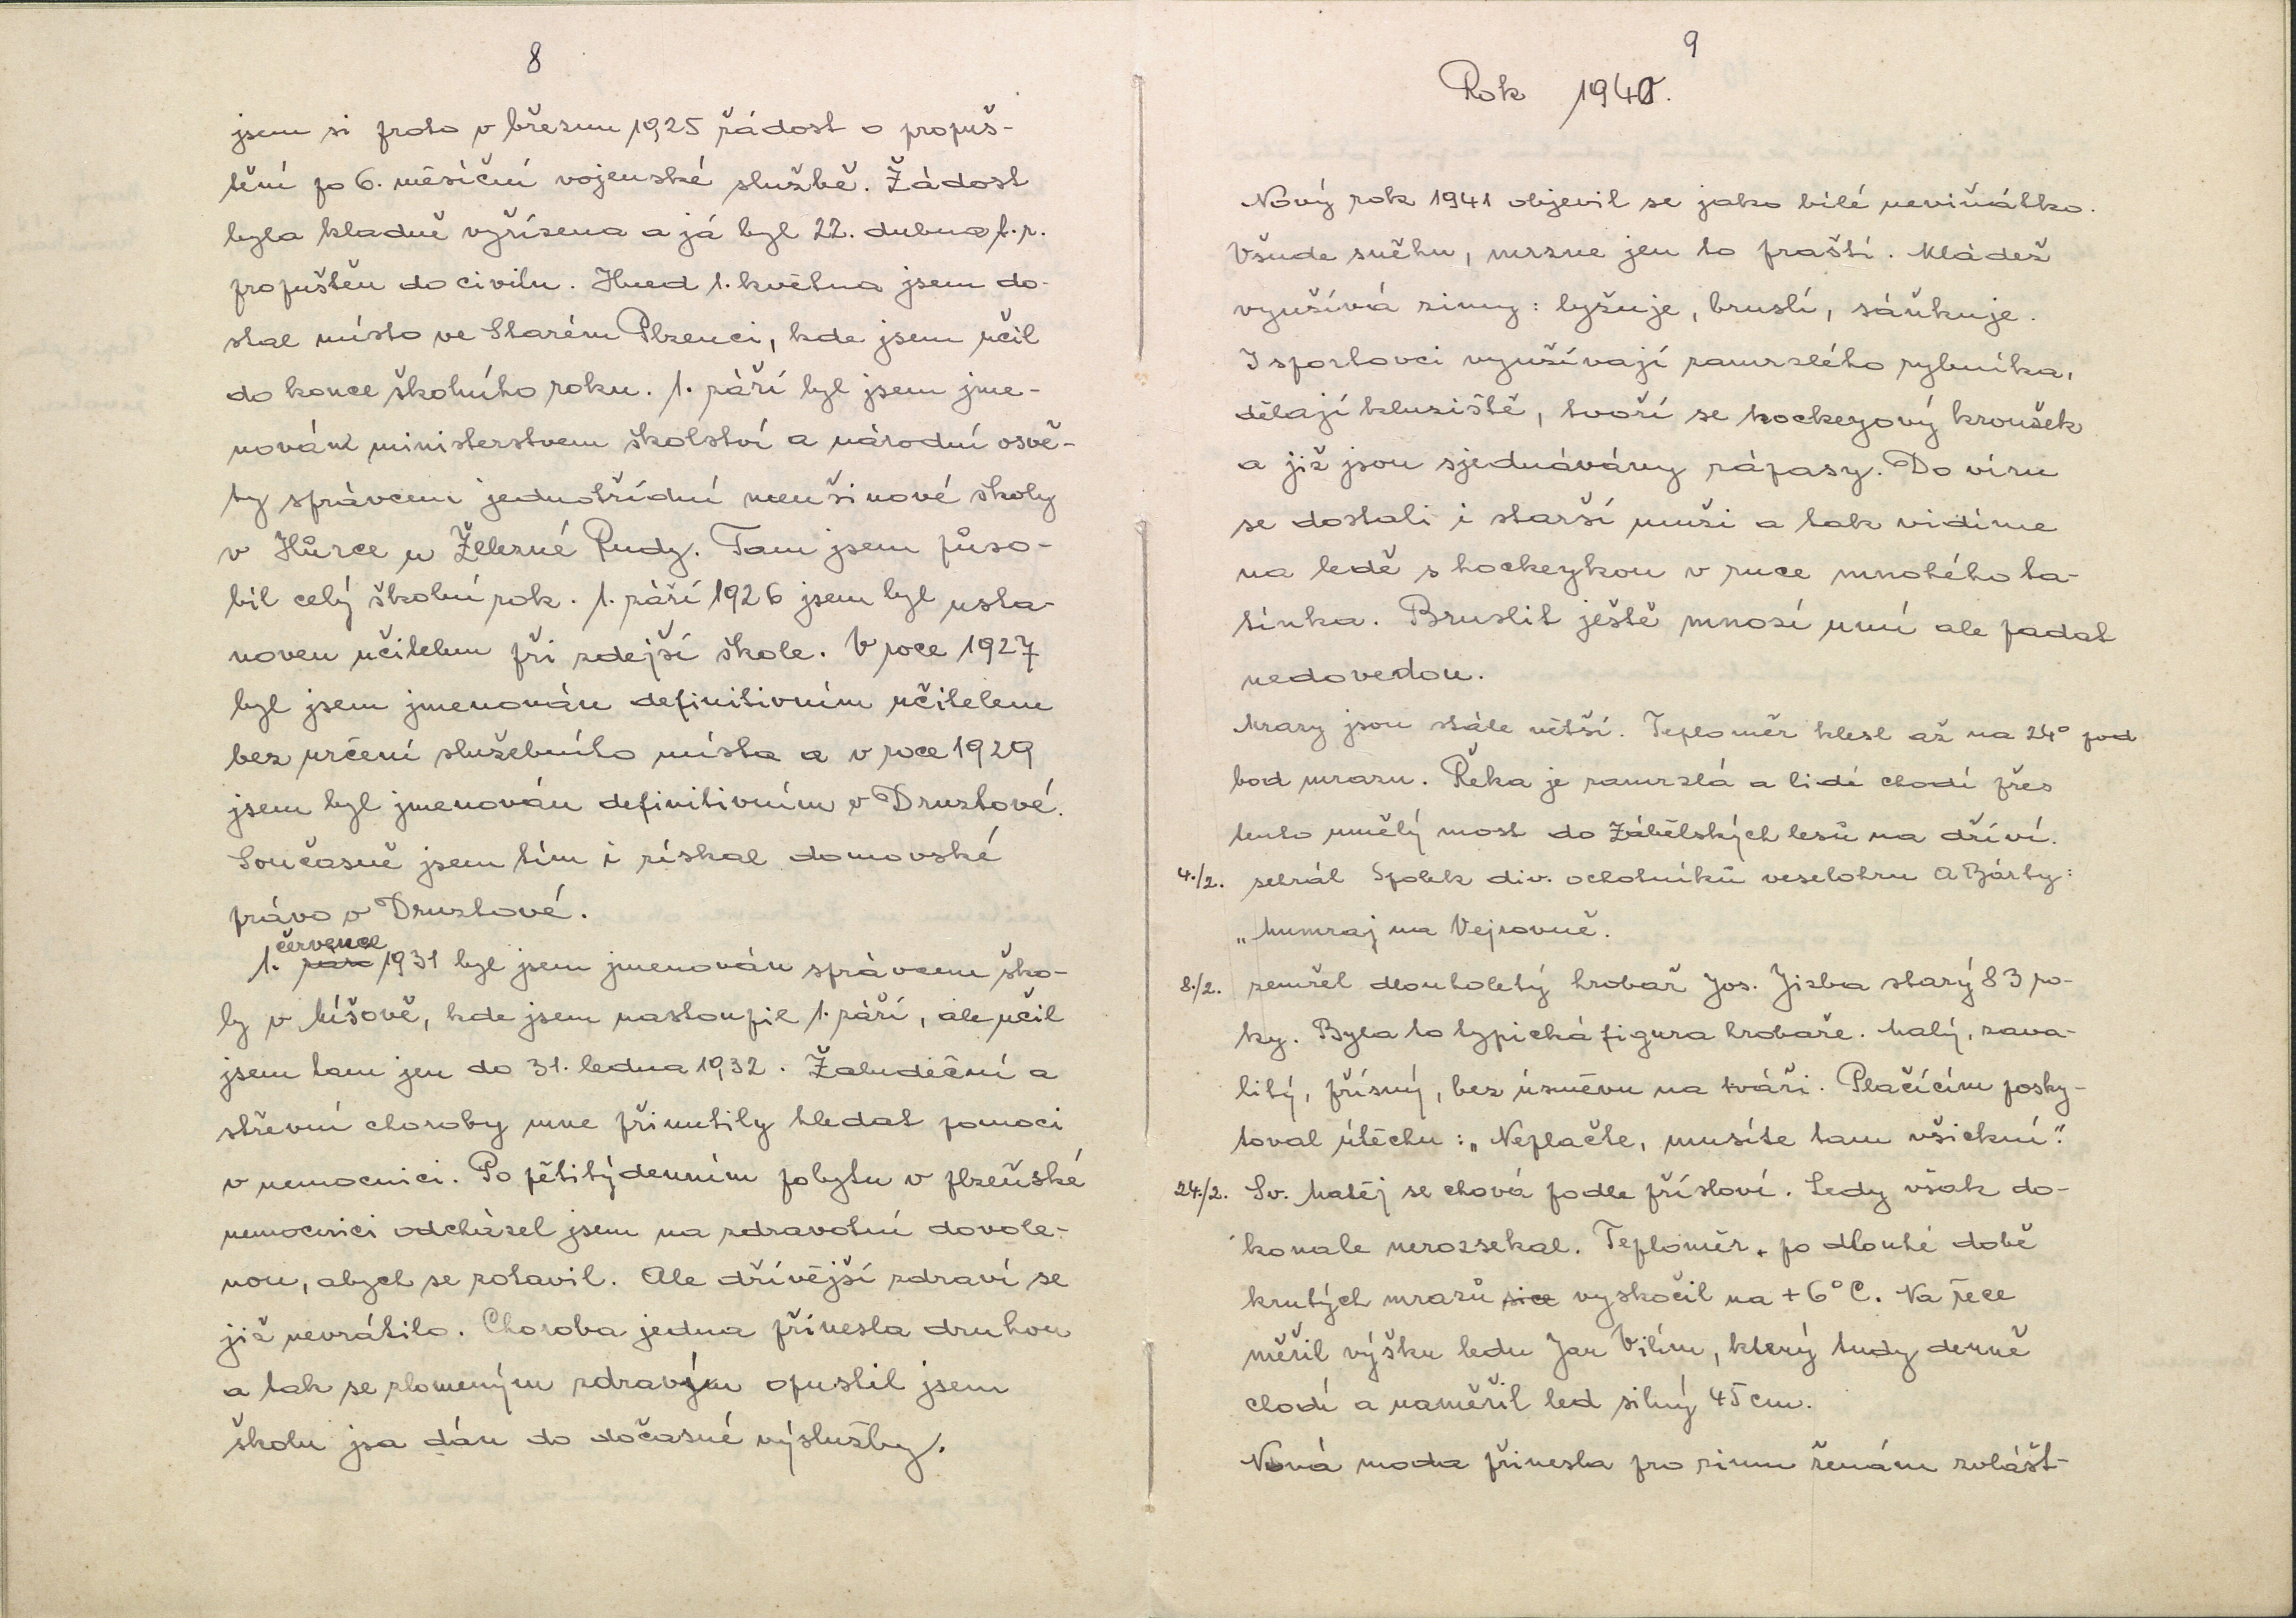 8
jsem si proto v březnu 1925 žádost o propuš-
tění po 6. měsíční vojenské službě. Žádost
byla kladně vyřízena a já byl 22. dubna t.r.
propuštěn do civilu. Hned 1. května jsem do-
stal místo ve Starém Plzenci, kde jsem učil
do konce školního roku. 1. září byl jsem jme-
nován ministerstvem školství a národní osvě-
ty správcem jednotřídní menšinové školy
v Hůrce u Železné Rudy. Tam jsem půso-
bil celý školní rok. 1. září 1926 jsem byl usta-
noven učitelem při zdejší škole. V roce 1927
byl jsem jmenován definitivním učitelem
bez určení služebního místa a v roce 1929
jsem byl jmenován definitivním v Druztové.
Současně jsem tím i získal domovské
právo v Druztové.
července
1. září 1931 byl jsem jmenován správcem ško-
ly v Míšově, kde jsem nastoupil 1. září, ale učil
jsem tam jen do 31. ledna 1932. Žaludeční a
střevní choroby mne přinutily hledat pomoci
v nemocnici. Po pětitýdenním pobytu v plzeňské
nemocnici odcházel jsem na zdravotní dovole-
nou, abych se zotavil. Ale dřívější zdraví se
již nevrátilo. Choroba jedna přinesla druhou
a tak se zlomeným zdravím opustil jsem
školu jsa dán do dočasné výslužby.
9
Rok 1940.
Nový rok 1941 objevil se jako bílé neviňátko.
Všude sněhu, mrzne jen to praští. Mládež
využívá zimy: lyžuje, bruslí, sáňkuje.
I sportovci využívají zamrzlého rybníka,
dělají kluziště, tvoří se hockeyový kroužek
a již jsou sjednávány zápasy. Do víru
se dostali i starší muži a tak vidíme
na ledě s hockeykou v ruce mnohého ta-
tínka. Bruslit ještě mnozí umí ale padat
nedovedou.
Mrazy jsou stále větší. Teploměr klesl až na 24° pod
bod mrazu. Řeka je zamrzlá a lidé chodí přes
tento umělý most do Zábělských lesů na dříví.
4./2. sehrál Spolek div. ochotníků veselohru A Bárty:
„Mumraj na Vejrovně.
8./2. zemřel dlouholetý hrobař Jos. Jizba starý 83 ro-
ky. Byla to typická figura hrobaře. Malý, zava-
litý, přísný, bez úsměvu na tváři. Plačícím posky-
toval útěchu: „Neplačte, musíte tam všickni".
24./2. Sv. Matěj se chová podle přísloví. Ledy však do-
konale nerozsekal. Teploměr po dlouhé době
krutých mrazů sice vyskočil na +6°C. Na řece
měřil výšku ledu Jan Vilím, který tudy denně
chodí a naměřil led silný 45 cm.
Nová moda přinesla pro zimu ženám zvlášt-